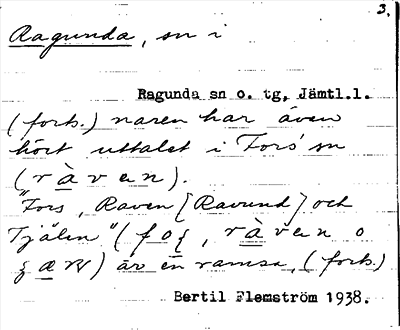 3.
Ragunda, sn i
Ragunda sn o. tg, Jämtl.l.
(forts.) naren har även
hört uttalet i Fors' sn
(ràven).
"Fors, Raven [Ravund] och
Tjälin" (foʂ, ràven o
) är en ramsa, (forts.)
Bertil Flemström 1938.